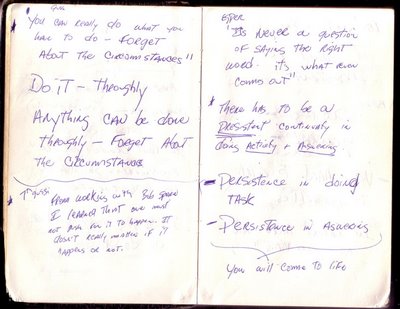 You can really do what you
have to do - Forget
About the circumstances"
Do it - throughly
Anything can be done
throughly - Forget About
the circumstances
From working with Bob
I learned that one must
not push for it to happen. It
doesn't really matter if it
happens or not.
"Its never a question
of saying the right
word. its what even
comes out"
* there has to be a
persistent continuity in
doing Activity +
- Persistence in doing
TASK
- Persistence in
you will come to life